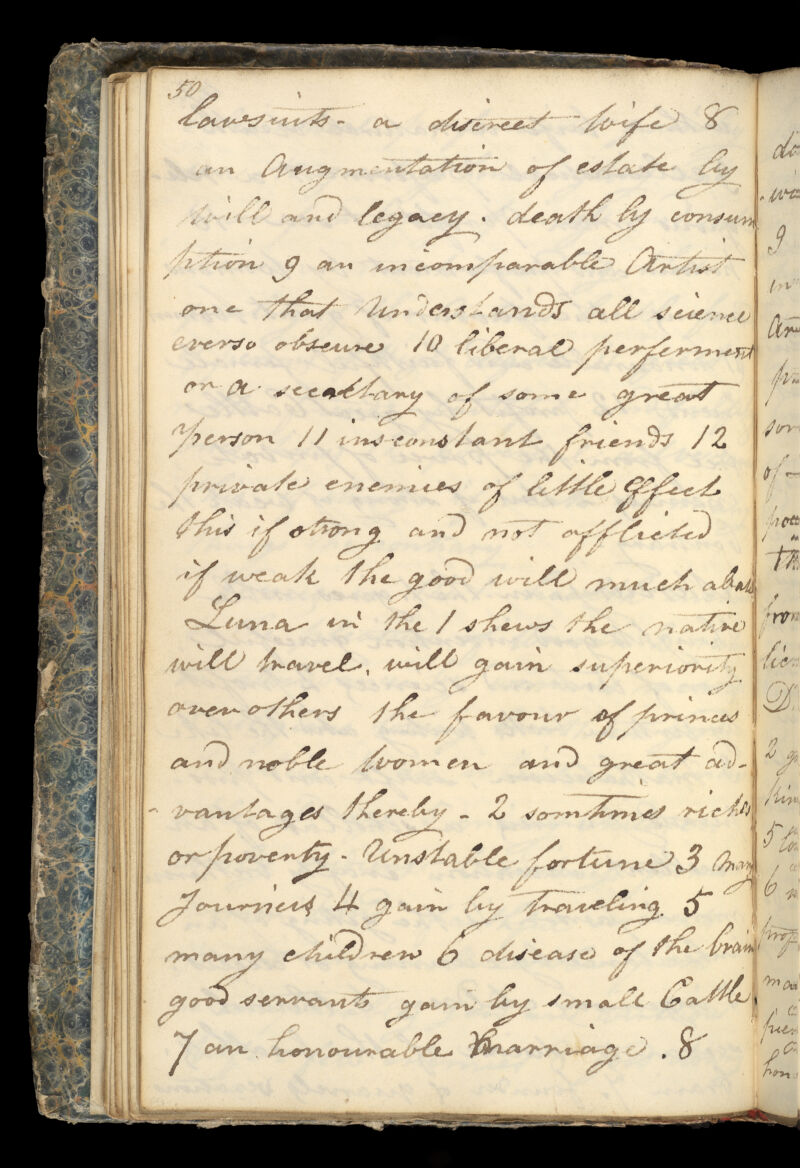 50
Lawsuits - a discreet Wife 8
an Augmentation of estate by
Will and legacy. death by consum
ption 9 an incomparable Artist
one that Understands all science
everso obscure 10 liberal perferment
or a secretary of some great
person 11 inconstant friends 12
private enemies of little Effect
this if strong and not afflicted
if weak the good will much abate
Luna in the 1 shews the native
will travel, will gain superiority
over others the favour of princes
and noble Women and great ad-
vantages thereby - 2 somtimes riches
or poverty - Unstable fortune 3 many
Journeys 4 gain by traveling 5
many children 6 disease of the brain
good servants gain by small Cattle
7 an honourable Marriage. 8